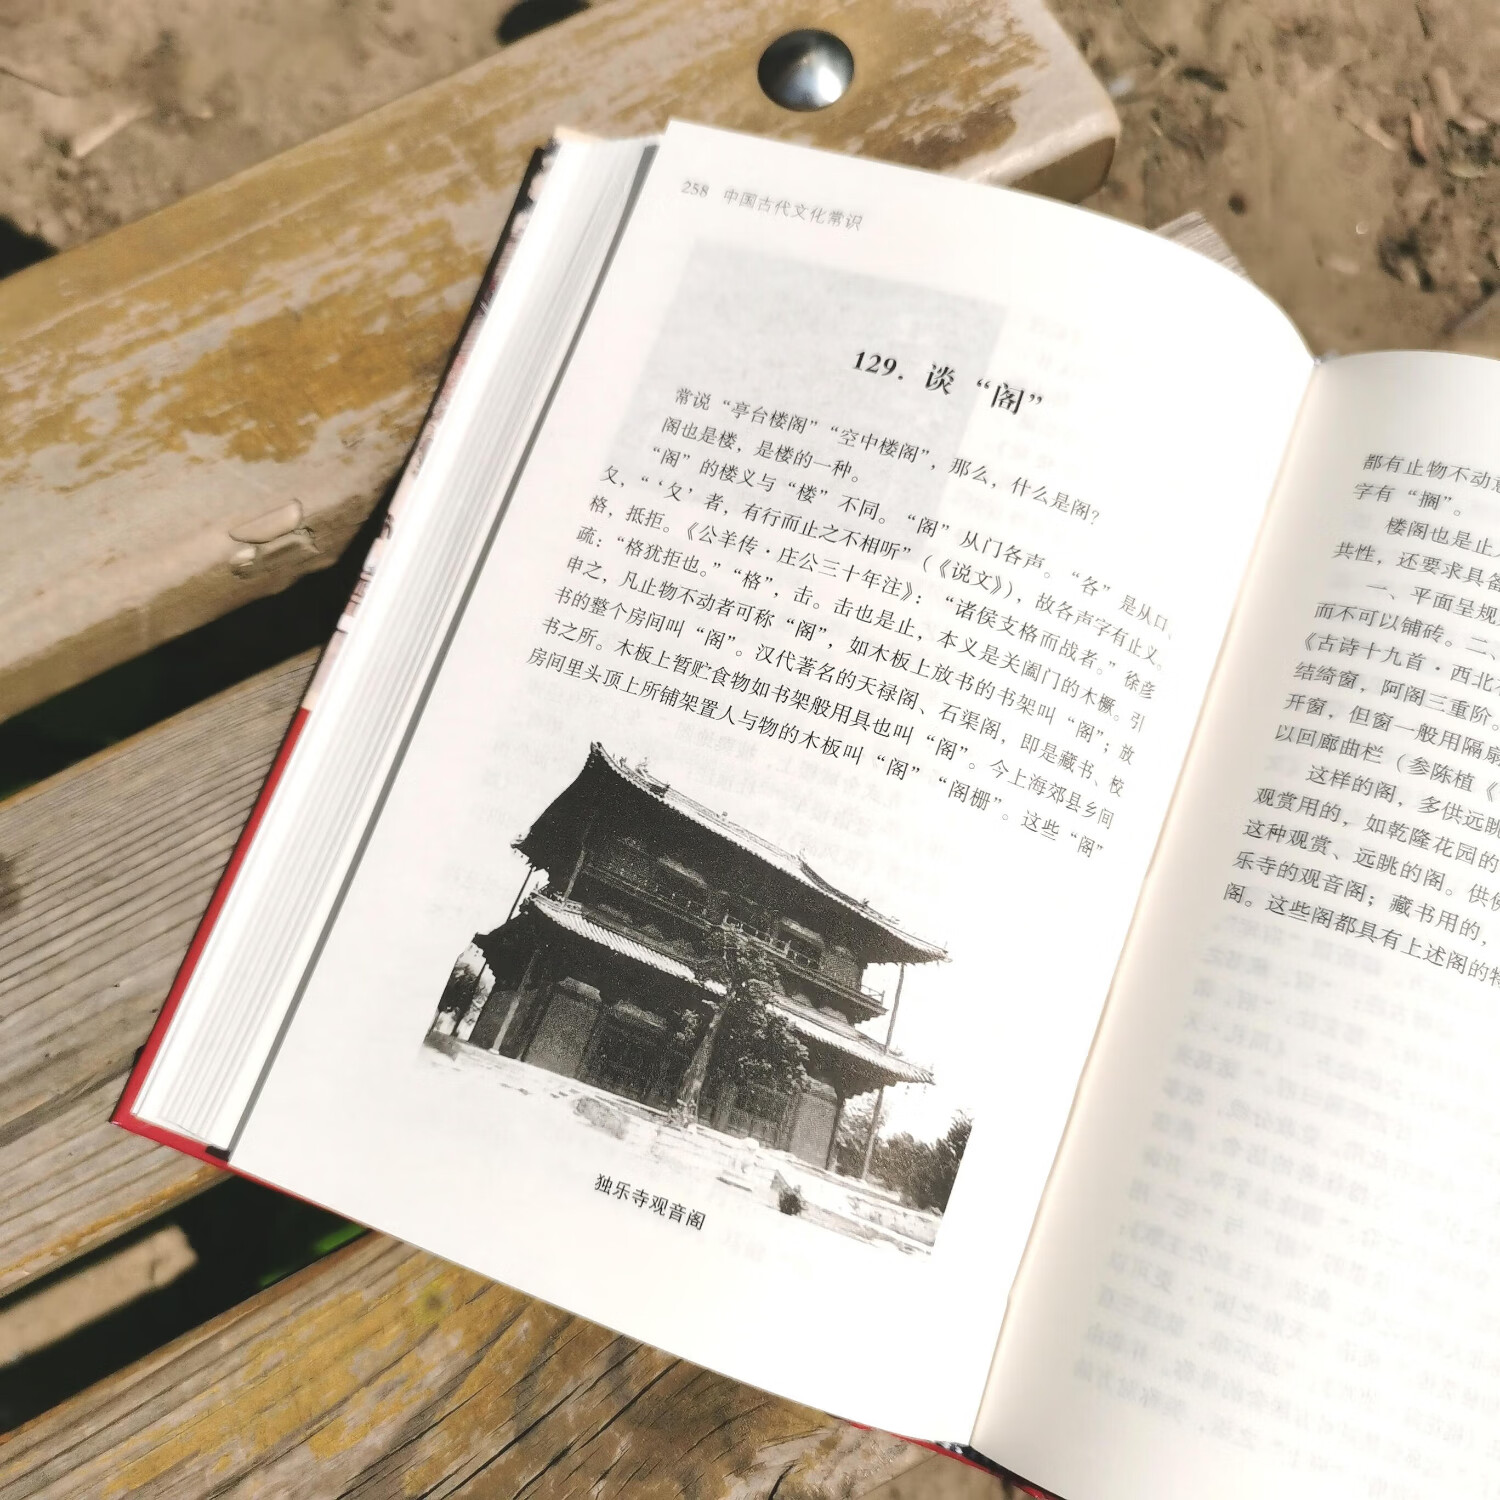 258 中国古代文化常识
129. 谈“阁”
常说“亭台楼阁”“空中楼阁”，那么，什么是阁？
阁也是楼，是楼的一种。
“阁”的楼义与“楼”不同。“阁”从门各声。“各”是从口、
夂，“‘夂’者，有行而止之不相听”（《说文》），故各声字有止义。
格，抵拒。《公羊传·庄公三十年注》：“诸侯支格而战者。”徐彦
疏：“格犹拒也。”“格”，击。击也是止，本义是关阖门的木橛。引
申之，凡止物不动者可称“阁”，如木板上放书的书架叫“阁”；放
书的整个房间叫“阁”。汉代著名的天禄阁、石渠阁，即是藏书、校
书之所。木板上暂贮食物如书架般用具也叫“阁”。今上海郊县乡间
房间里头顶上所铺架置人与物的木板叫“阁”“阁栅”。这些“阁”
独乐寺观音阁
都有止物不动意
字有“搁”。
楼阁也是止
共性，还要求具备
一、平面呈规
而不可以铺砖。二、
《古诗十九首·西北
结绮窗，阿阁三重阶。
开窗，但窗一般用隔扇
以回廊曲栏（参陈植《
这样的阁，多供远眺
观赏用的，如乾隆花园的
这种观赏、远眺的阁。供佛
乐寺的观音阁；藏书用的，
阁。这些阁都具有上述阁的特